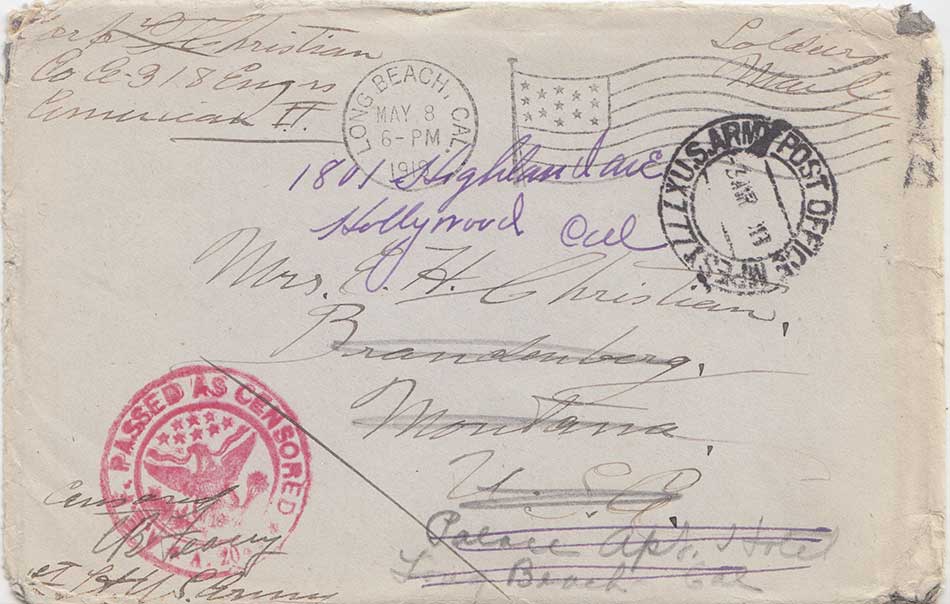 Christian
Co A-318 Engrs
American
Soldiers
Mail
LONG BEACH, CAL.
MAY 8
6-PM
1919
U.S. ARMY POST OFFICE
1801 Highland ave
Hollywood Cal
Mrs. C. H. Christian,
Brandenberg,
Montana,
U.S.A.
Palace Apt. Hotel
Long Beach Cal
PASSED AS CENSORED
U.S. Army